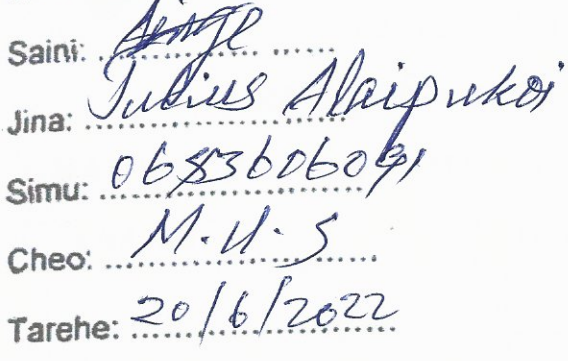 Saini:
Jina: Julius Alaipukoi
Simu:
Cheo: M.U.S
Tarehe: 20/6/2022